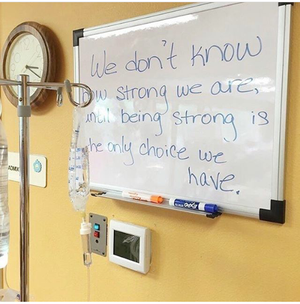 We don't know
how strong we are,
until being strong is
the only choice we
have.
EXPO